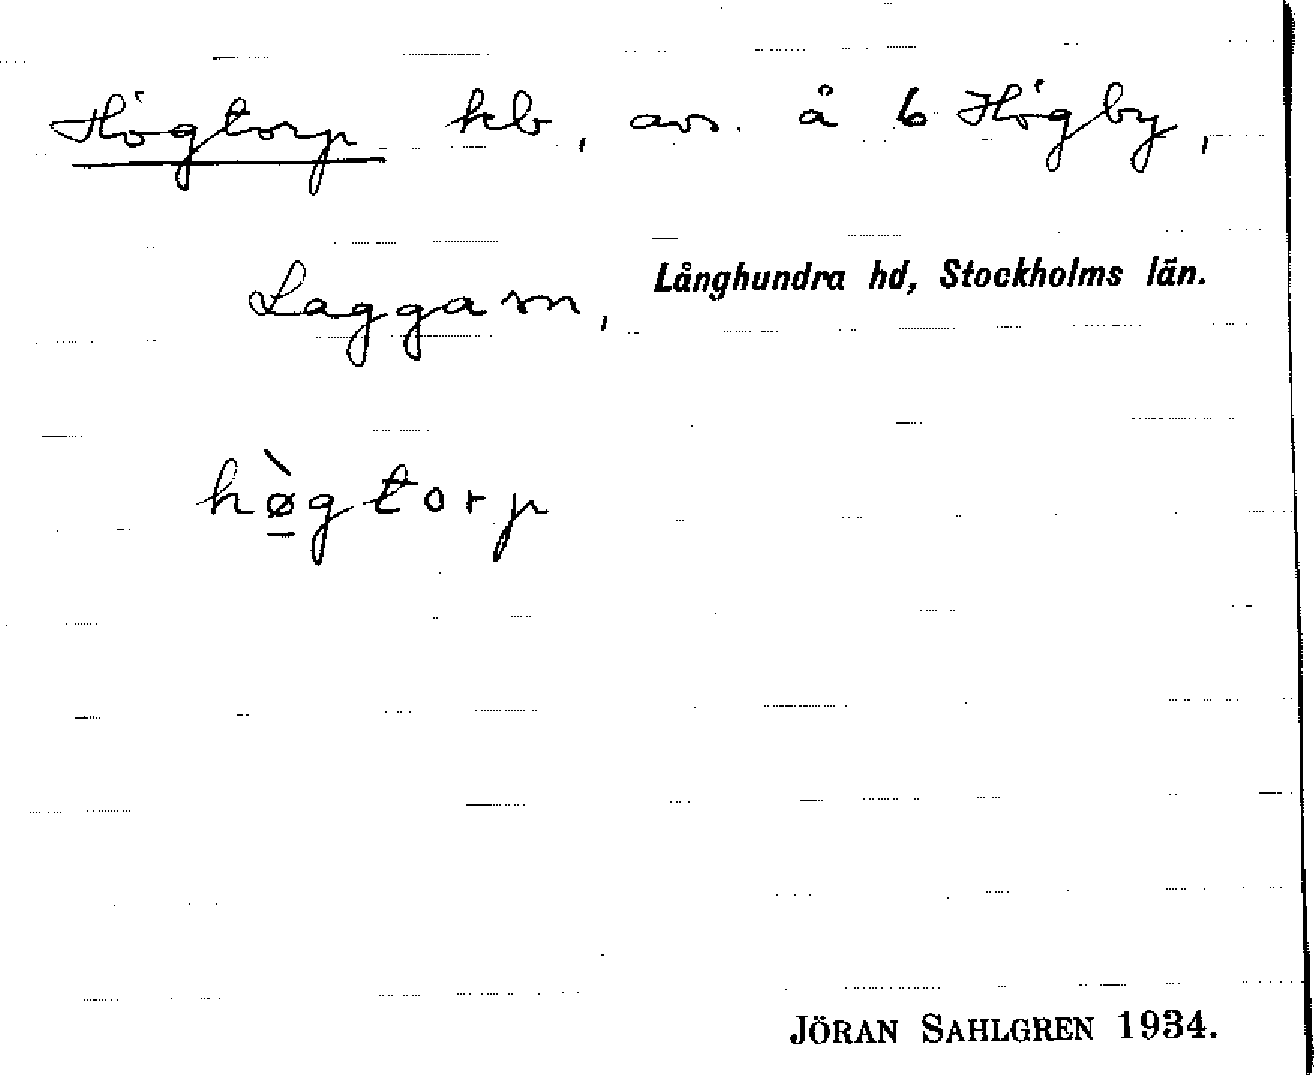 Högtorp hb, avs. å b Högby,
Laggasn, Långhundra hd, Stockholms län.
hø̀gtorp
JÖRAN SAHLGREN 1934.